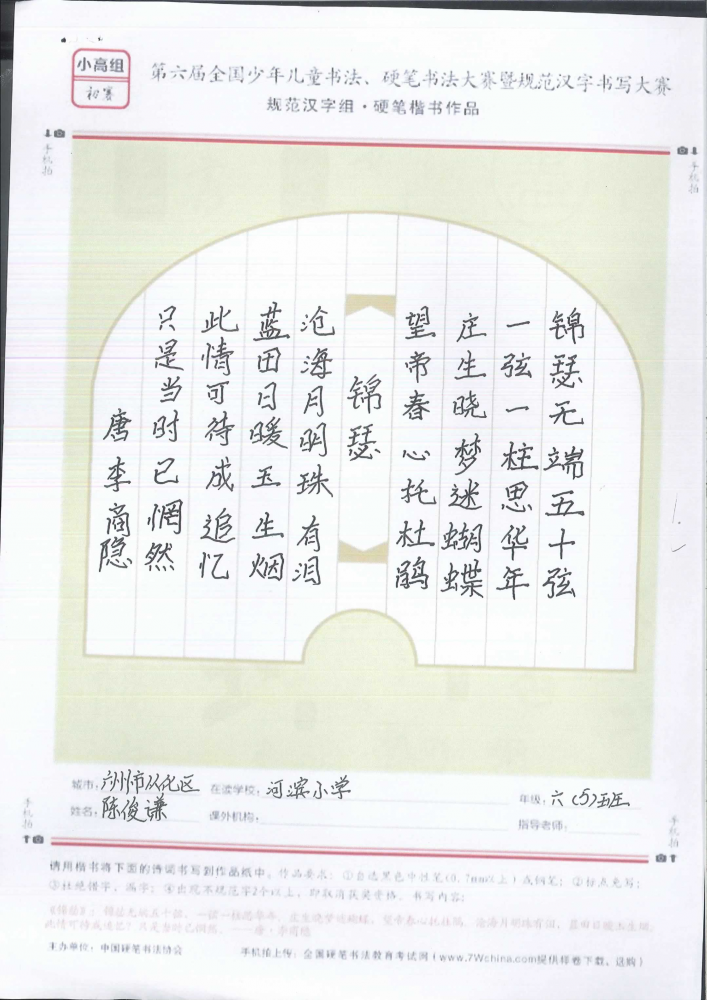 小高组
初赛
第六届全国少年儿童书法、硬笔书法大赛暨规范汉字书写大赛
规范汉字组·硬笔楷书作品
手机拍
手机拍
锦瑟无端五十弦
一弦一柱思华年
庄生晓梦迷蝴蝶
望帝春心托杜鹃
锦瑟
沧海月明珠有泪
蓝田日暖玉生烟
此情可待成追忆
只是当时已惘然
唐李商隐
城市：广州市从化区 在读学校：河滨小学 年级：六（5）班
姓名：陈俊谦 课外机构： 指导老师：
手机拍
手机拍
请用楷书将下面的诗词书写到作品纸中，作品要求：①自选黑色中性笔(0.7mm以上)或钢笔；②标点免写；
③杜绝错字、漏字；④出现不规范字2个以上，即取消获奖资格。书写内容：
《锦瑟》：锦瑟无端五十弦，一弦一柱思华年。庄生晓梦迷蝴蝶，望帝春心托杜鹃。沧海月明珠有泪，蓝田日暖玉生烟。
此情可待成追忆？只是当时已惘然。——唐·李商隐
主办单位：中国硬笔书法协会 手机拍上传：全国硬笔书法教育考试网（www.7Wchina.com提供样卷下载、选购）